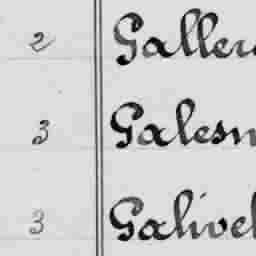 2 Galler
3 Galesn
3 Galivel